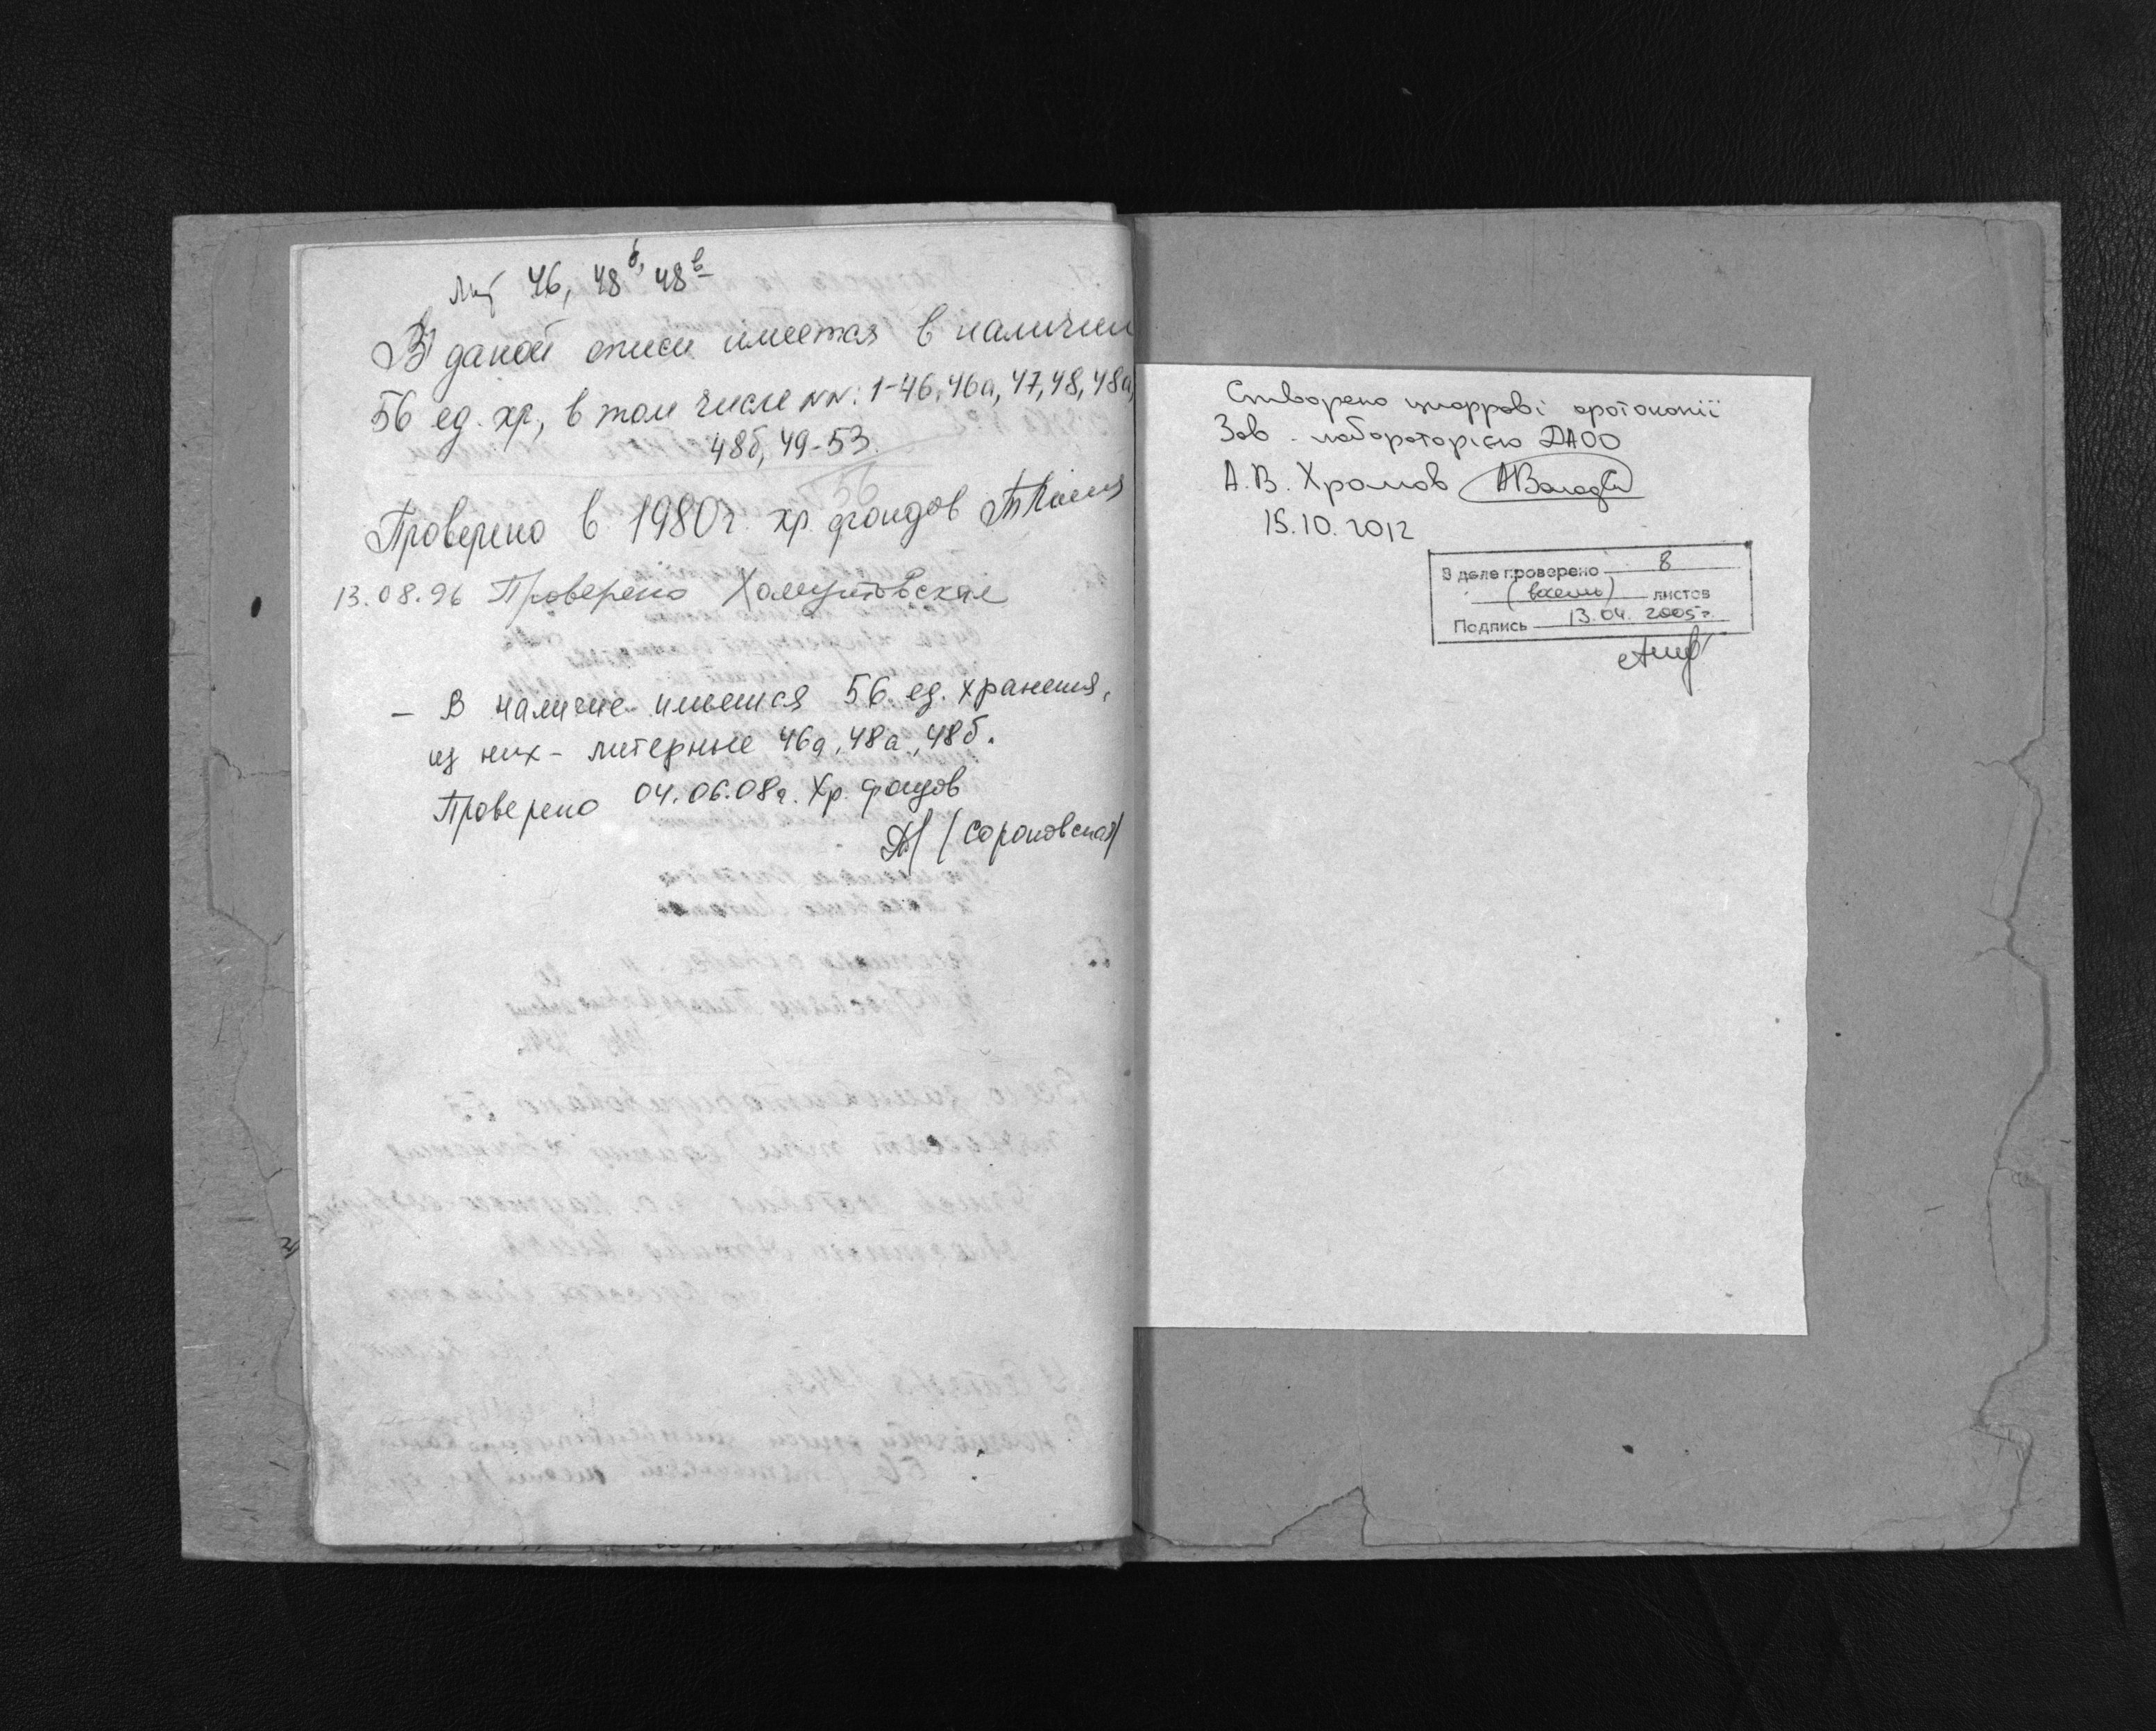 Лит 46, 48б, 48в
В даной описи имеется в наличии
56 ед. хр., в том числе NN: 1-46, 46а, 47, 48, 48а,
48б, 49-53.
56
Проверено в 1980г. хр. фондов
13.08.96 Проверено Хомутовская
- В наличие имеется 56 ед. хранения,
из них - литерные 46а, 48а, 48б.
Проверено 04.06.08г. Хр. фондов
(Сороковская)
Створено цифрові фотокопії
Зав. лабораторією ДАОО
А.В. Хромов
15.10.2012
В деле проверено 8
(восемь) листов
Подпись 13.04.2005г.